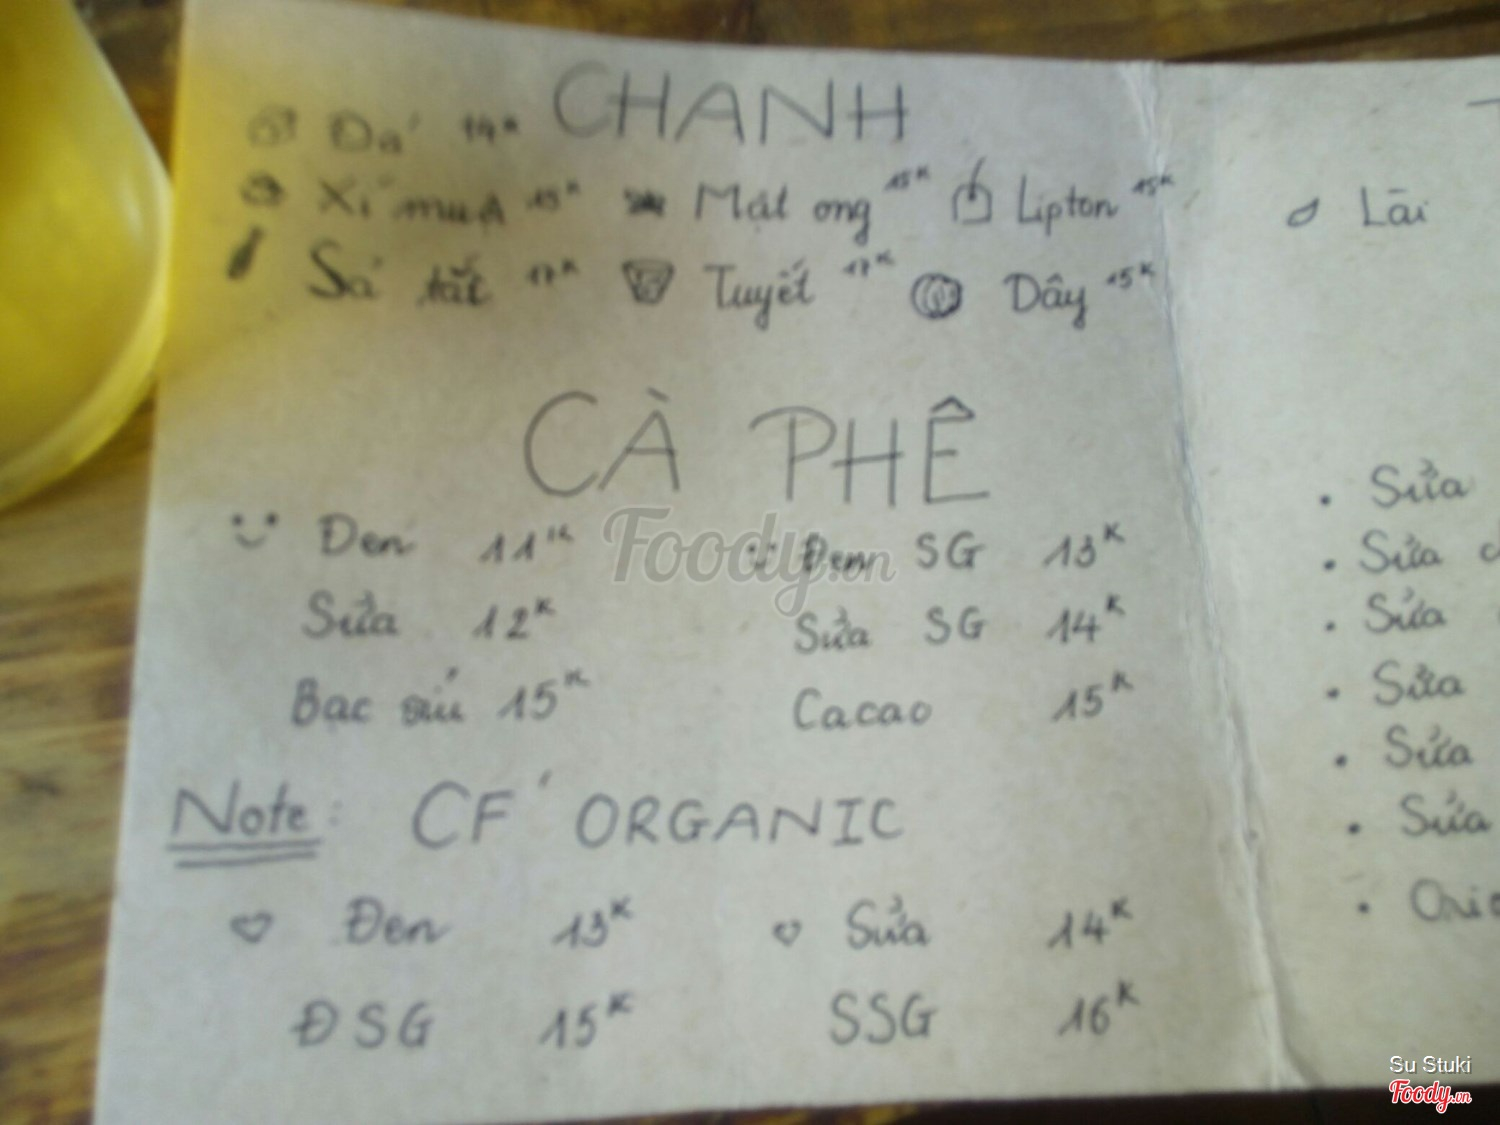 CHANH
Đá 14K
Xí muội 15K Mật ong 15K Lipton 15K
Sả tắc 17K Tuyết 17K Dây 15K
Lài
CÀ PHÊ
Đen 11K Đen SG 13K
Sữa 12K Sữa SG 14K
Bạc sỉu 15K Cacao 15K
Note: CF' ORGANIC
Đen 13K Sữa 14K
ĐSG 15K SSG 16K
Sữa
Sữa
Sữa
Sữa
Sữa
Sữa
Foody.vn
Su Stuki
Foody.vn